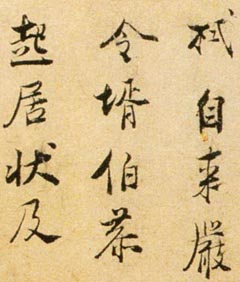 軾自來嚴
令壻伯恭
起居狀及